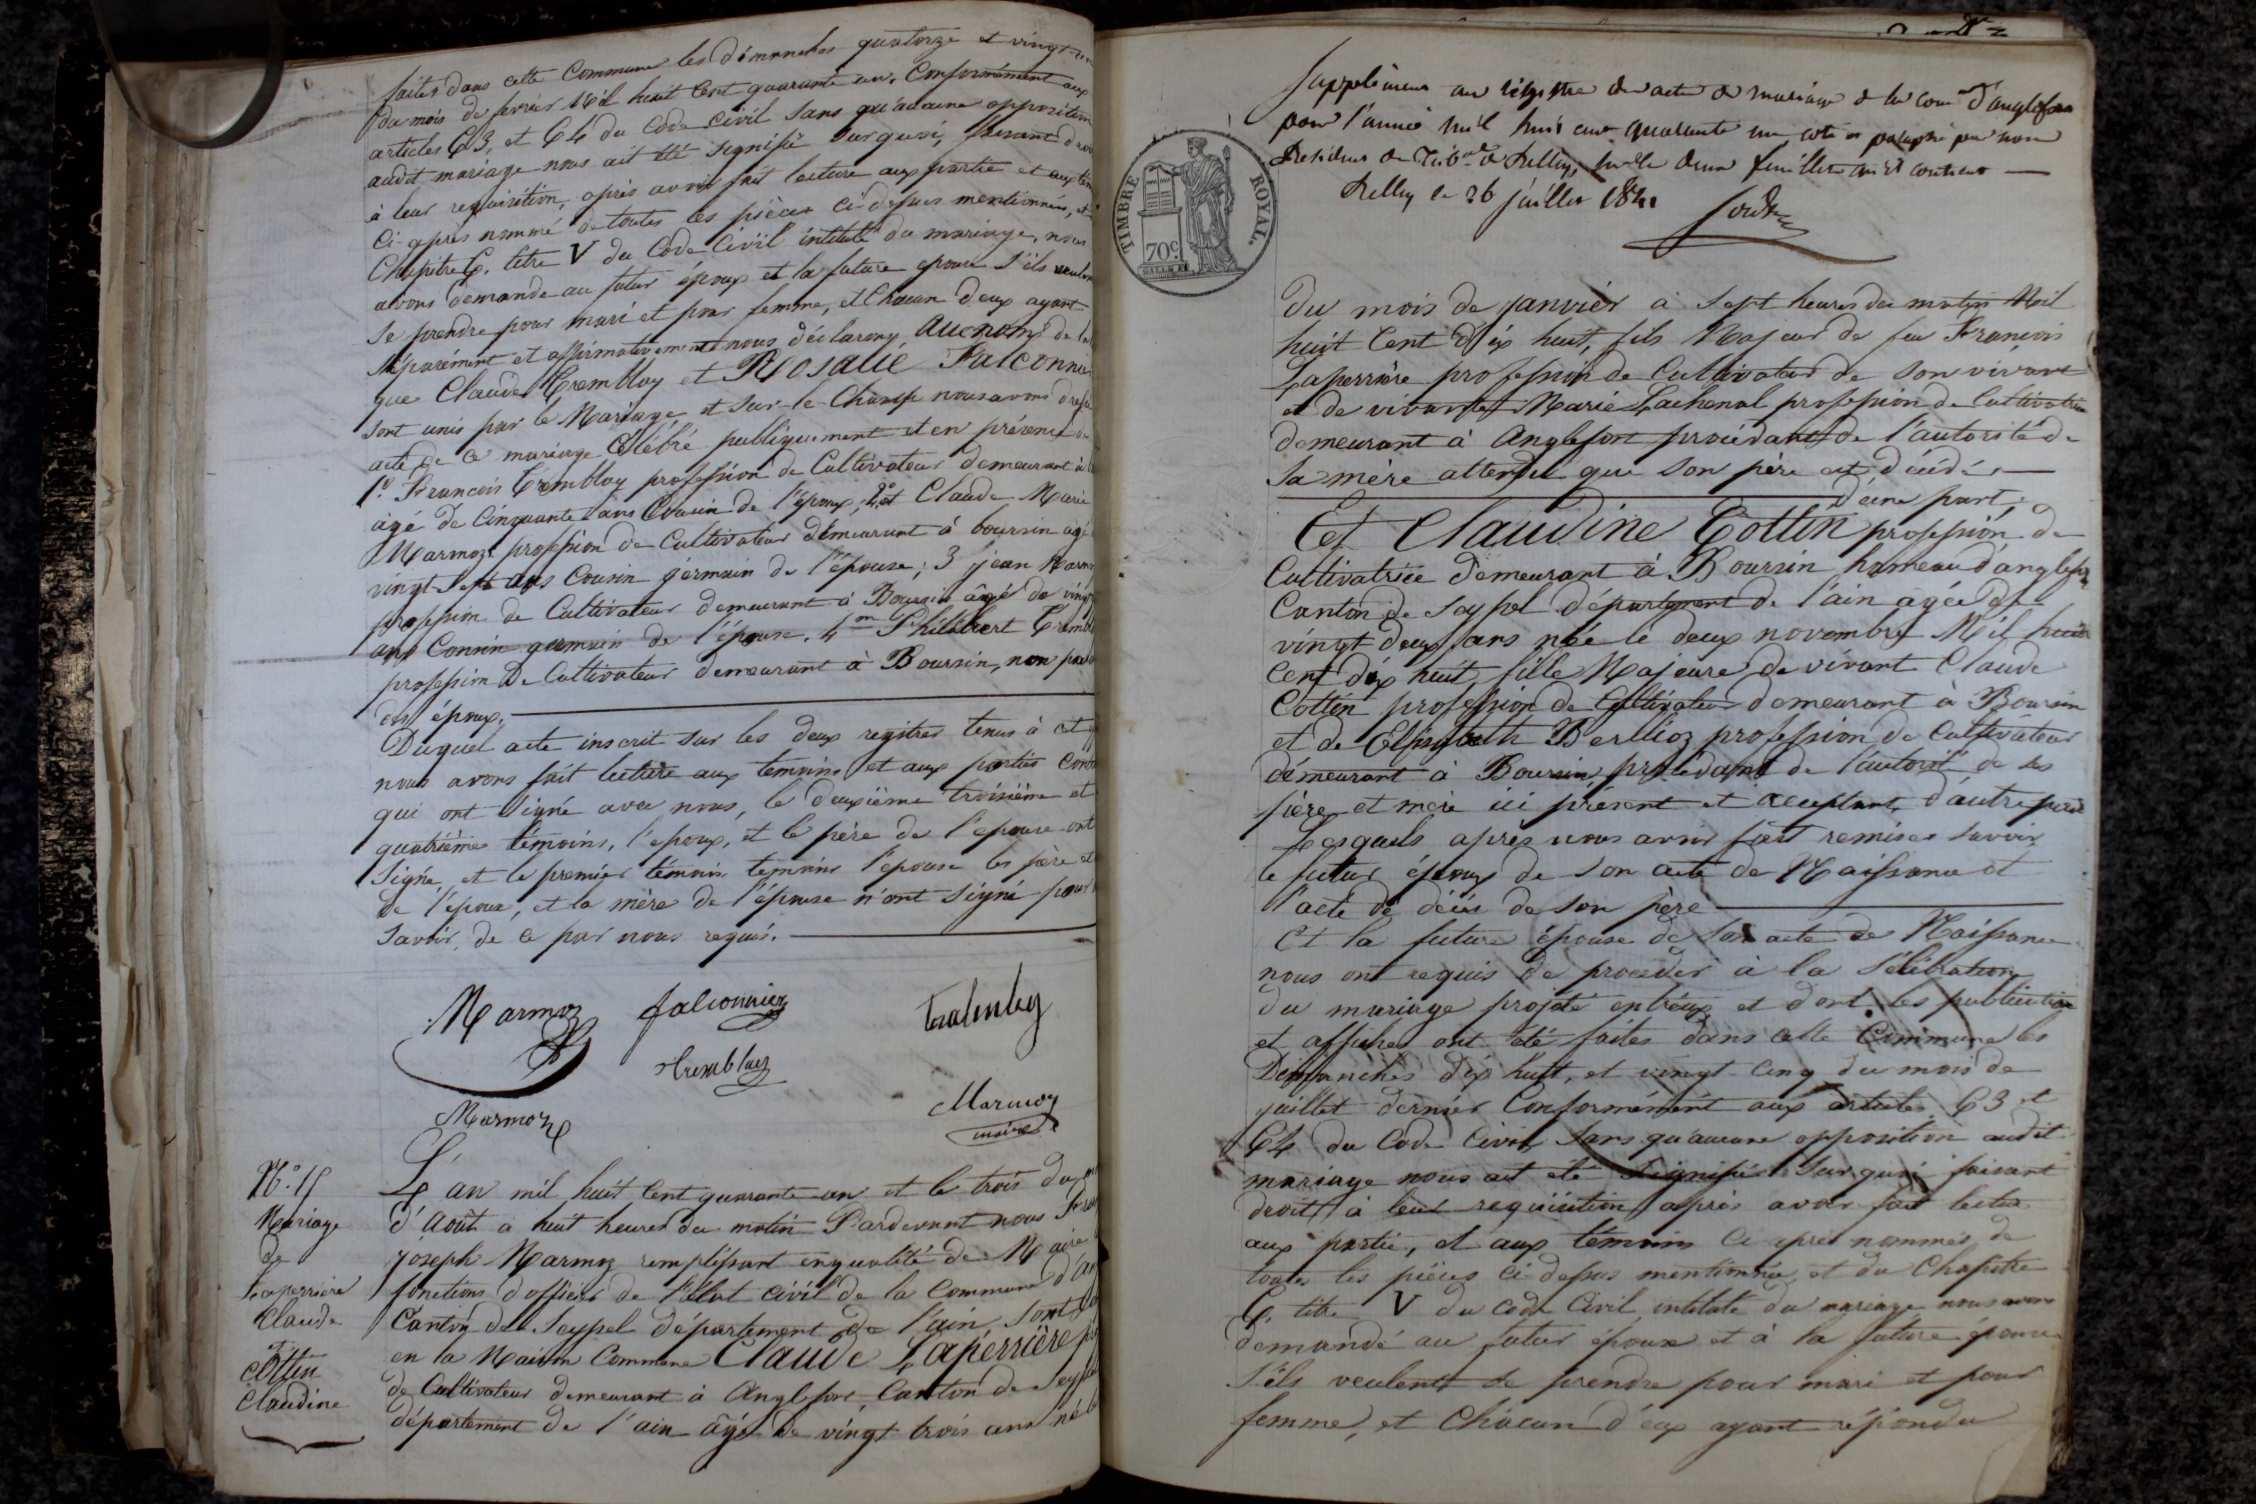 faites dans cette Commune les dimanches quatorze et vingt
du mois de février Mil huit Cent quarante un. Conformément aux
articles 63, et 64 du Code Civil sans qu'aucune opposition
audit mariage nous ait été signifié sur quoi, faisant droit
à leur requisition, après avoir fait lecture aux partie et aux
Ci-après nommé de toutes les pièces ci-dessus mentionnées, et
Chapitre 6. titre V du Code Civil intitulé du mariage, nous
avons demandé au futur époux et la future épouse s'ils veulent
se prendre pour mari et pour femme, et Chacun d'eux ayant
séparément et affirmativement nous déclarons, Au nom de la
que Claude Trembloy et Rosalie Falconnie
sont unis par le Mariage et sur-le-Champ nous avons dressé
acte de ce mariage Célébré publiquement et en présence de
1.º François Trembloy profession de Cultivateur demeurant à
âgé de Cinquante ans Cousin de l'époux, 2º et Claude Marie
Marmoz profession de Cultivateur demeurant à boursin agé
vingt sept ans Cousin germain de l'épouse; 3 jean Marm
profession de Cultivateur demeurant à Boursin âgé de vingt
ans Cousin germain de l'épouse. 4me Philibert Trembl
profession De Cultivateur demeurant à Boursin, non par
des époux.
Duquel acte inscrit sur les deux registres tenus à cet
nous avons fait lecture aux temoins et aux parties Con
qui ont signé avec nous, le deuxième troisième et
quatrième témoins, l'epoux, et le père de l'epouse ont
Signé, et le premier témoin l'épouse les père et
de l'époux, et la mère de l'épouse n'ont signé pour
savoir, de ce par nous requis.
Marmoz falconnier
Trembloz
Marmoz
Marmoz
maire
Nº. 15
Mariage
de
Laperriere
Claude
et
Cottin
Claudine
L'an mil huit Cent quarante-un et le trois du
d'Août a huit heures du matin Pardevant nous
Joseph Marmoz remplissant en qualité de Maire
fonctions d'officier de l'Etat civil de la Commune d'An
Canton de Seyssel département de l'ain, sont
en la Maison Commune Claude Laperrière
de Cultivateur demeurant à Anglefort, Canton de Seyssel
département de l'ain âgé de vingt trois ans né le
Supplément au régistre des actes de mariage de la comne d'anglefort
pour l'année mil huit cent quarante un coté et paraphé par nous
Président du Tribal de Belley, sur les deux feuillets qu'il contient
Belley le 26 juillet 1841
TIMBRE ROYAL.
70c.
du mois de janvier à Sept heures du matin Mil
huit Cent dix huit, fils Majeur de feu François
Laperrière profession de Cultivateur de son vivant
et de vivante Marie Lachenal profession de Cultivatrice
demeurant à Anglefort procédant de l'autorité de
sa mère attendu que son père est décédé,
d'une part,
Et Claudine Cottin profession de
Cultivatrice demeurant à Boursin hameau d'anglefort
Canton de Seyssel département de l'ain agée de
vingt deux ans née le deux novembre Mil huit
Cent dix huit, fille Majeure de vivant Claude
Cottin profession de Cultivateur demeurant à Boursin
et de Elisabeth Berlioz profession de Cultivateur
demeurant à Boursin, procédant de l'autorité de ses
père et mère ici présent et acceptant, d'autre part
Lesquels après nous avoir fait remises savoir
le futur époux de son acte de Naissance et
l'acte de décès de son père
Et la future épouse de son acte de Naissance
nous ont requis de procéder à la Célébration
du mariage projeté entr'eux et dont les publication
et affiches ont été faites dans cette Commune les
Dimanches dix huit, et vingt Cinq du mois de
juillet dernier Conformément aux articles 63 et
64 du Code Civil sans qu'aucune opposition audit
mariage nous ait été signifié sur quoi faisant
droit à leur requisition après avoir fait lecture
aux partie, et aux témoins Ci après nommés, de
toutes les pièces ci-dessus mentionnée, et du Chapitre
6. titre V du Code Civil intitulé du mariage nous avons
demandé au futur époux et à la future épouse
s'ils veulent se prendre pour mari et pour
femme, et Chacun d'eux ayant répondu